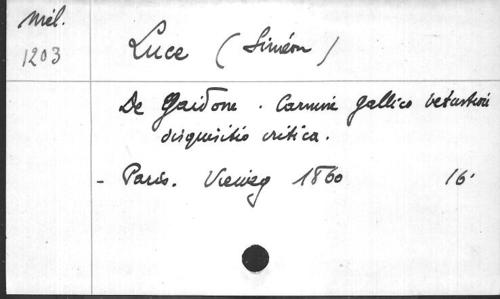 Mél.
1203
Luce (Siméon)
De Gaidone. Carmine gallico vetustiore
disquisitio critica.
- Paris. Vieweg 1860 16°